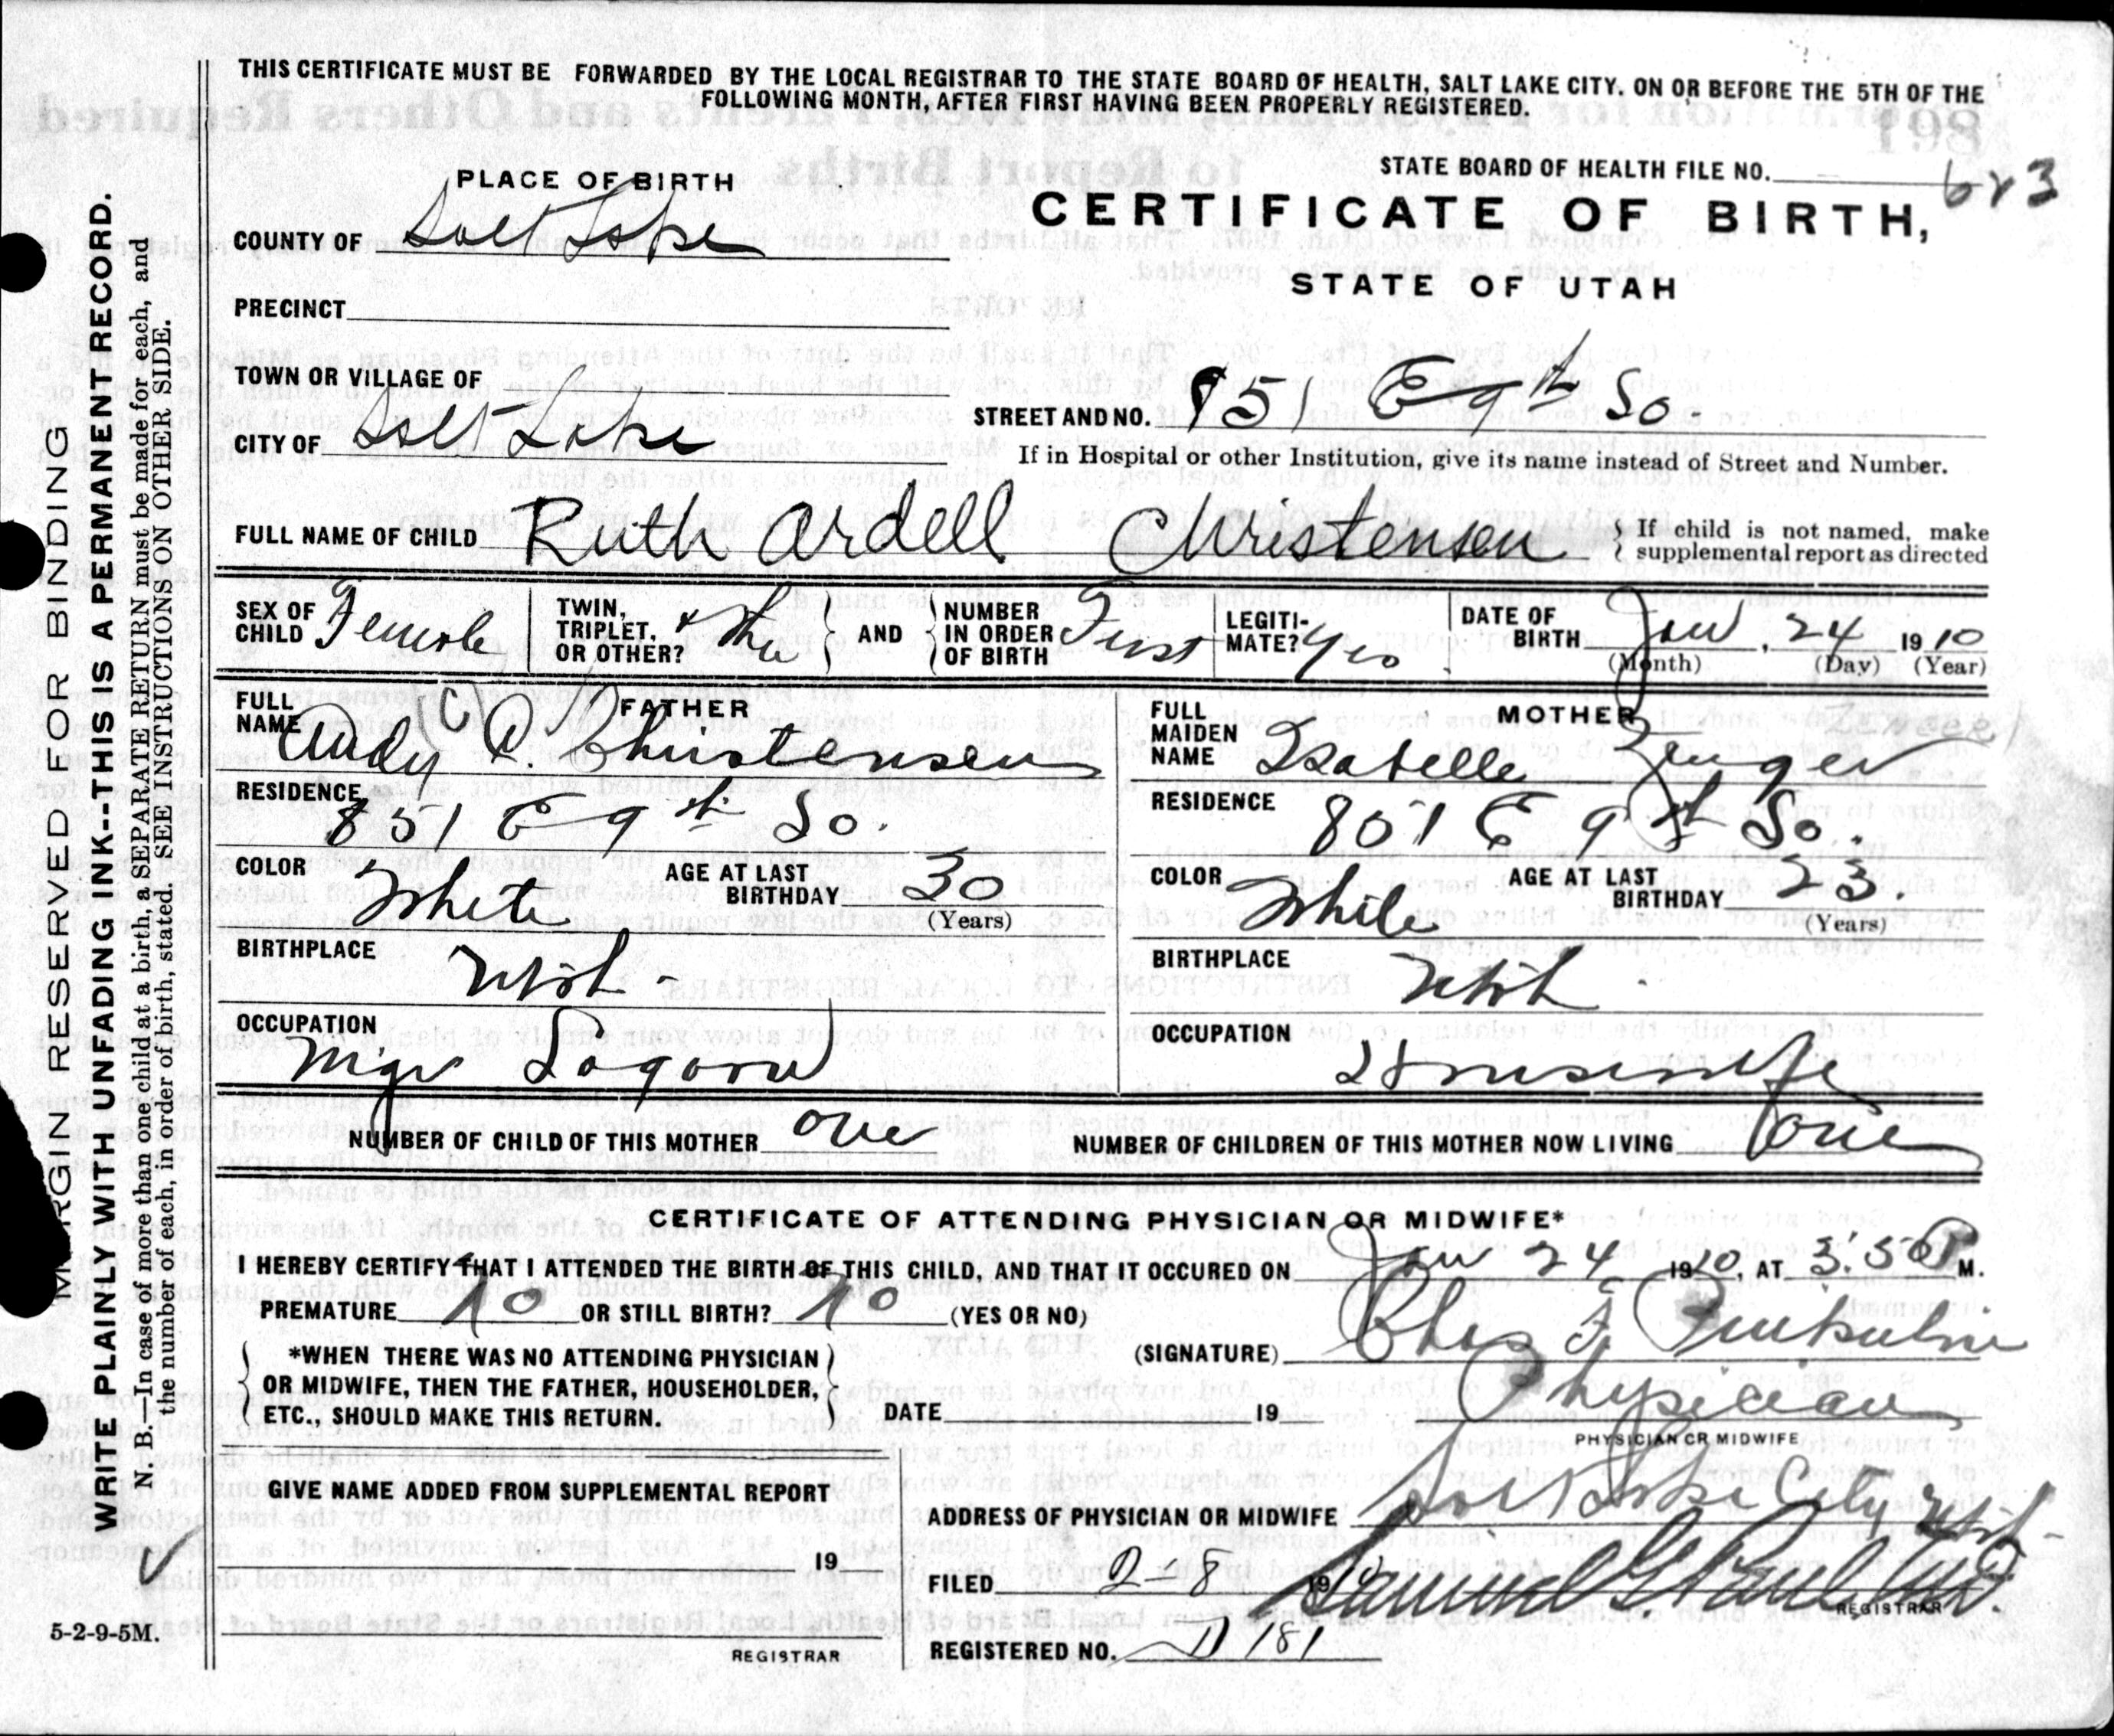 THIS CERTIFICATE MUST BE FORWARDED BY THE LOCAL REGISTRAR TO THE STATE BOARD OF HEALTH, SALT LAKE CITY. ON OR BEFORE THE 5TH OF THE
FOLLOWING MONTH, AFTER FIRST HAVING BEEN PROPERLY REGISTERED.
PLACE OF BIRTH
STATE BOARD OF HEALTH FILE NO. 623
CERTIFICATE OF BIRTH,
STATE OF UTAH
COUNTY OF Salt Lake
PRECINCT
TOWN OR VILLAGE OF
CITY OF Salt Lake
STREET AND NO. 851 E 9th So.
If in Hospital or other Institution, give its name instead of Street and Number.
FULL NAME OF CHILD Ruth Ardell Christensen
{ If child is not named, make supplemental report as directed
SEX OF CHILD Female
TWIN, TRIPLET, OR OTHER?
} AND { NUMBER IN ORDER OF BIRTH First
LEGITIMATE? Yes
DATE OF BIRTH Jan, 24 1910
(Month) (Day) (Year)
FATHER
FULL NAME Andy C. Christensen
RESIDENCE 851 E 9th So.
COLOR White
AGE AT LAST BIRTHDAY 30
(Years)
BIRTHPLACE Utah -
OCCUPATION Mgr
MOTHER
FULL MAIDEN NAME Isabelle Zenger
ZENGER
RESIDENCE 851 E 9th So.
COLOR White
AGE AT LAST BIRTHDAY 23.
(Years)
BIRTHPLACE Utah.
OCCUPATION Housewife
NUMBER OF CHILD OF THIS MOTHER One
NUMBER OF CHILDREN OF THIS MOTHER NOW LIVING One
CERTIFICATE OF ATTENDING PHYSICIAN OR MIDWIFE*
I HEREBY CERTIFY THAT I ATTENDED THE BIRTH OF THIS CHILD, AND THAT IT OCCURED ON Jan 24 1910, AT 3:50 P M.
PREMATURE No OR STILL BIRTH? No (YES OR NO)
*WHEN THERE WAS NO ATTENDING PHYSICIAN
OR MIDWIFE, THEN THE FATHER, HOUSEHOLDER,
ETC., SHOULD MAKE THIS RETURN.
(SIGNATURE) Chas F.
DATE 19
Physician
PHYSICIAN OR MIDWIFE
GIVE NAME ADDED FROM SUPPLEMENTAL REPORT
19
REGISTRAR
ADDRESS OF PHYSICIAN OR MIDWIFE Salt Lake City Utah-
FILED 2-8 1910 Samuel G. Paul M.D.
REGISTRAR
REGISTERED NO. 181
MARGIN RESERVED FOR BINDING
WRITE PLAINLY WITH UNFADING INK--THIS IS A PERMANENT RECORD.
N. B.—In case of more than one child at a birth, a SEPARATE RETURN must be made for each, and
the number of each, in order of birth, stated. SEE INSTRUCTIONS ON OTHER SIDE.
5-2-9-5M.